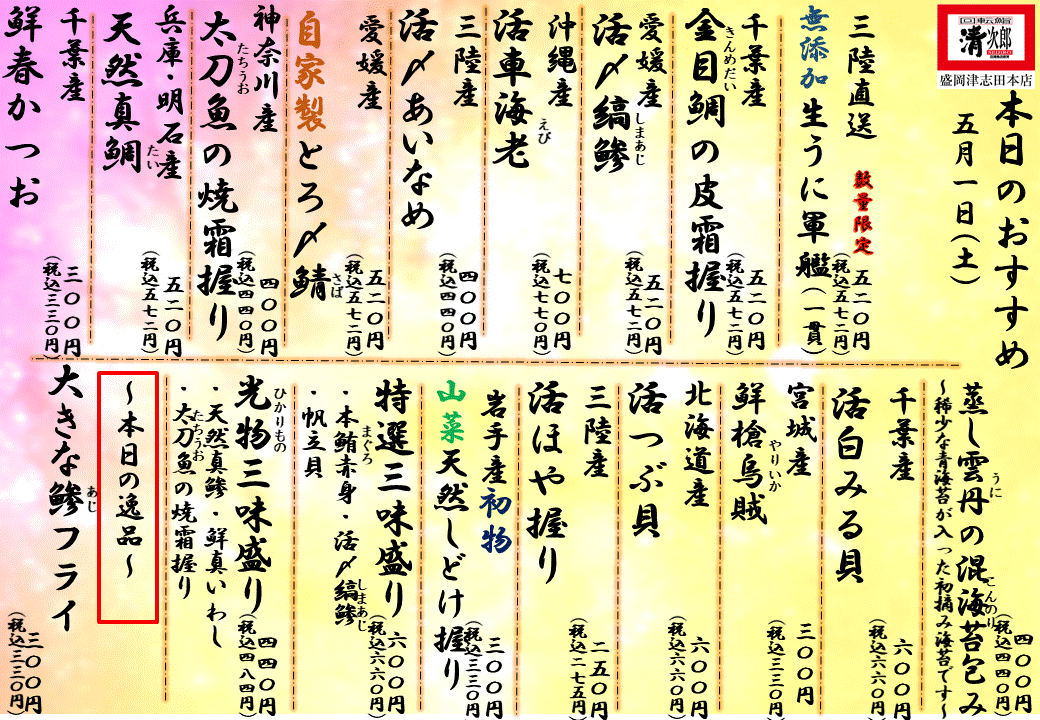 回転鮨
清次郎
SEIJIRO
盛岡津志田本店
本日のおすすめ
五月一日（土）
三陸直送 数量限定
無添加生うに軍艦（一貫）
五二〇円
（税込五七二円）
千葉産
金目鯛の皮霜握り
きんめだい
五二〇円
（税込五七二円）
愛媛産
活〆縞鯵
しまあじ
五二〇円
（税込五七二円）
沖縄産
活車海老
えび
七〇〇円
（税込七七〇円）
三陸産
活〆あいなめ
四〇〇円
（税込四四〇円）
愛媛産
自家製とろ〆鯖
さば
五二〇円
（税込五七二円）
神奈川産
太刀魚の焼霜握り
たちうお
四〇〇円
（税込四四〇円）
兵庫・明石産
天然真鯛
たい
五二〇円
（税込五七二円）
千葉産
鮮春かつお
三〇〇円
（税込三三〇円）
蒸し雲丹の混海苔包み
うに
こんのり
～稀少な青海苔が入った初摘み海苔です～
四〇〇円
（税込四四〇円）
千葉産
活白みる貝
六〇〇円
（税込六六〇円）
宮城産
鮮槍烏賊
やりいか
三〇〇円
（税込三三〇円）
北海道産
活つぶ貝
六〇〇円
（税込六六〇円）
三陸産
活ほや握り
二五〇円
（税込二七五円）
岩手産 初物
山菜天然しどけ握り
三〇〇円
（税込三三〇円）
特選三味盛り
・本鮪赤身・活〆縞鯵
まぐろ
しまあじ
・帆立貝
六〇〇円
（税込六六〇円）
光物三味盛り
ひかりもの
・天然真鯵・鮮真いわし
・太刀魚の焼霜握り
たちうお
四四〇円
（税込四八四円）
～本日の逸品～
大きな鯵フライ
あじ
三〇〇円
（税込三三〇円）